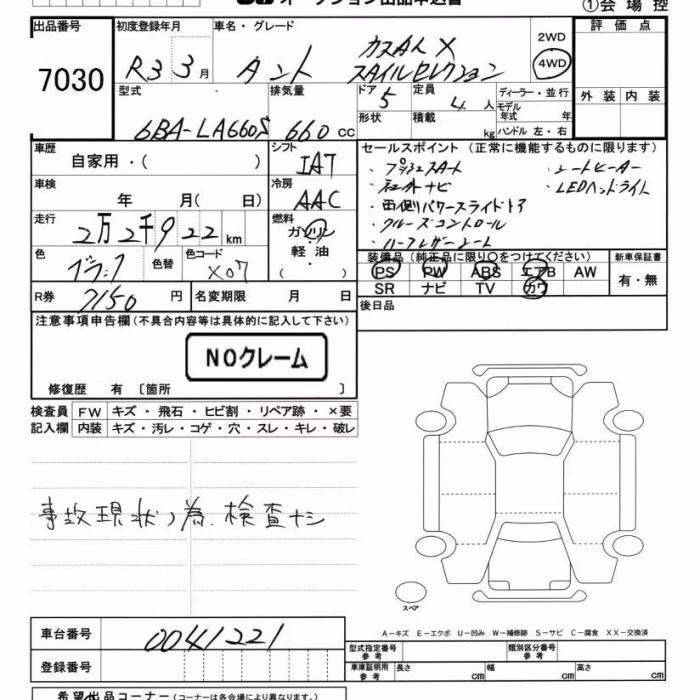 オークション出品申込書
①会場控
出品番号 初度登録年月 車名・グレード
7030
R3 3月 タント カスタムX
スタイルセレクション
2WD
4WD
評価点
外装 内装
型式 排気量 ドア 定員 ディーラー・並行
6BA-LA660S 660cc 5 4人
モデル年式 年
形状 積載 kg ハンドル 左・右
車歴 自家用・( )
シフト IA7
車検 年 月(日)
冷房 AAC
走行 2万2千922km
燃料 ガソリン・軽油・( )
色 ブラック 色替 色コード X07
R券 7150円 名変期限 月 日
セールスポイント(正常に機能するものに限ります)
・プッシュスタート ・シートヒーター
・純正ナビ ・LEDヘッドライト
・両側パワースライドドア
・クルーズコントロール
・ハーフレザーシート
装備品(純正品に限り○をつけてください) 新車保証書
PS PW ABS エアB AW 有・無
SR ナビ TV カワ
後日品
注意事項申告欄(不具合内容等は具体的に記入して下さい)
NOクレーム
修復歴 有〔箇所 〕
検査員 FW キズ・飛石・ヒビ割・リペア跡・×要
記入欄 内装 キズ・汚レ・コゲ・穴・スレ・キレ・破レ
事故現状ノ為、検査ナシ
スペア
A−キズ E−エクボ U−凹み W−補修跡 S−サビ C−腐食 XX−交換済
車台番号 0041221
登録番号
型式指定番号 参考 類別区分番号 参考
車庫証明用 参考 長さ cm 幅 cm 高さ cm
希望出品コーナー(コーナーは各会場により異なります。)